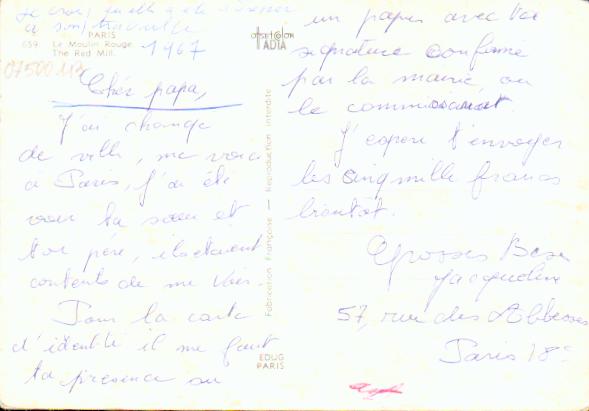 Je crois qu'elle a été
à son travail
PARIS
659 Le Moulin Rouge
The Red Mill.
1967
07500 113
Chér papa,
J'ai changé
de ville, me voici
à Paris, J'ai été
voir ta soeur et
ton père, ils étaient
contents de me voir.
Pour la carte
d'identité il me faut
ta présence ou
offset color
IADTA
Fabrication Française — Reproduction interdite
EDUG
PARIS
un papier avec ta
signature conforme
par la mairie, ou
le commissariat.
J'espère t'envoyer
les cinq mille francs
bientôt.
Grosses Bises
Jacqueline
57, rue des Abbesses
Paris 18e